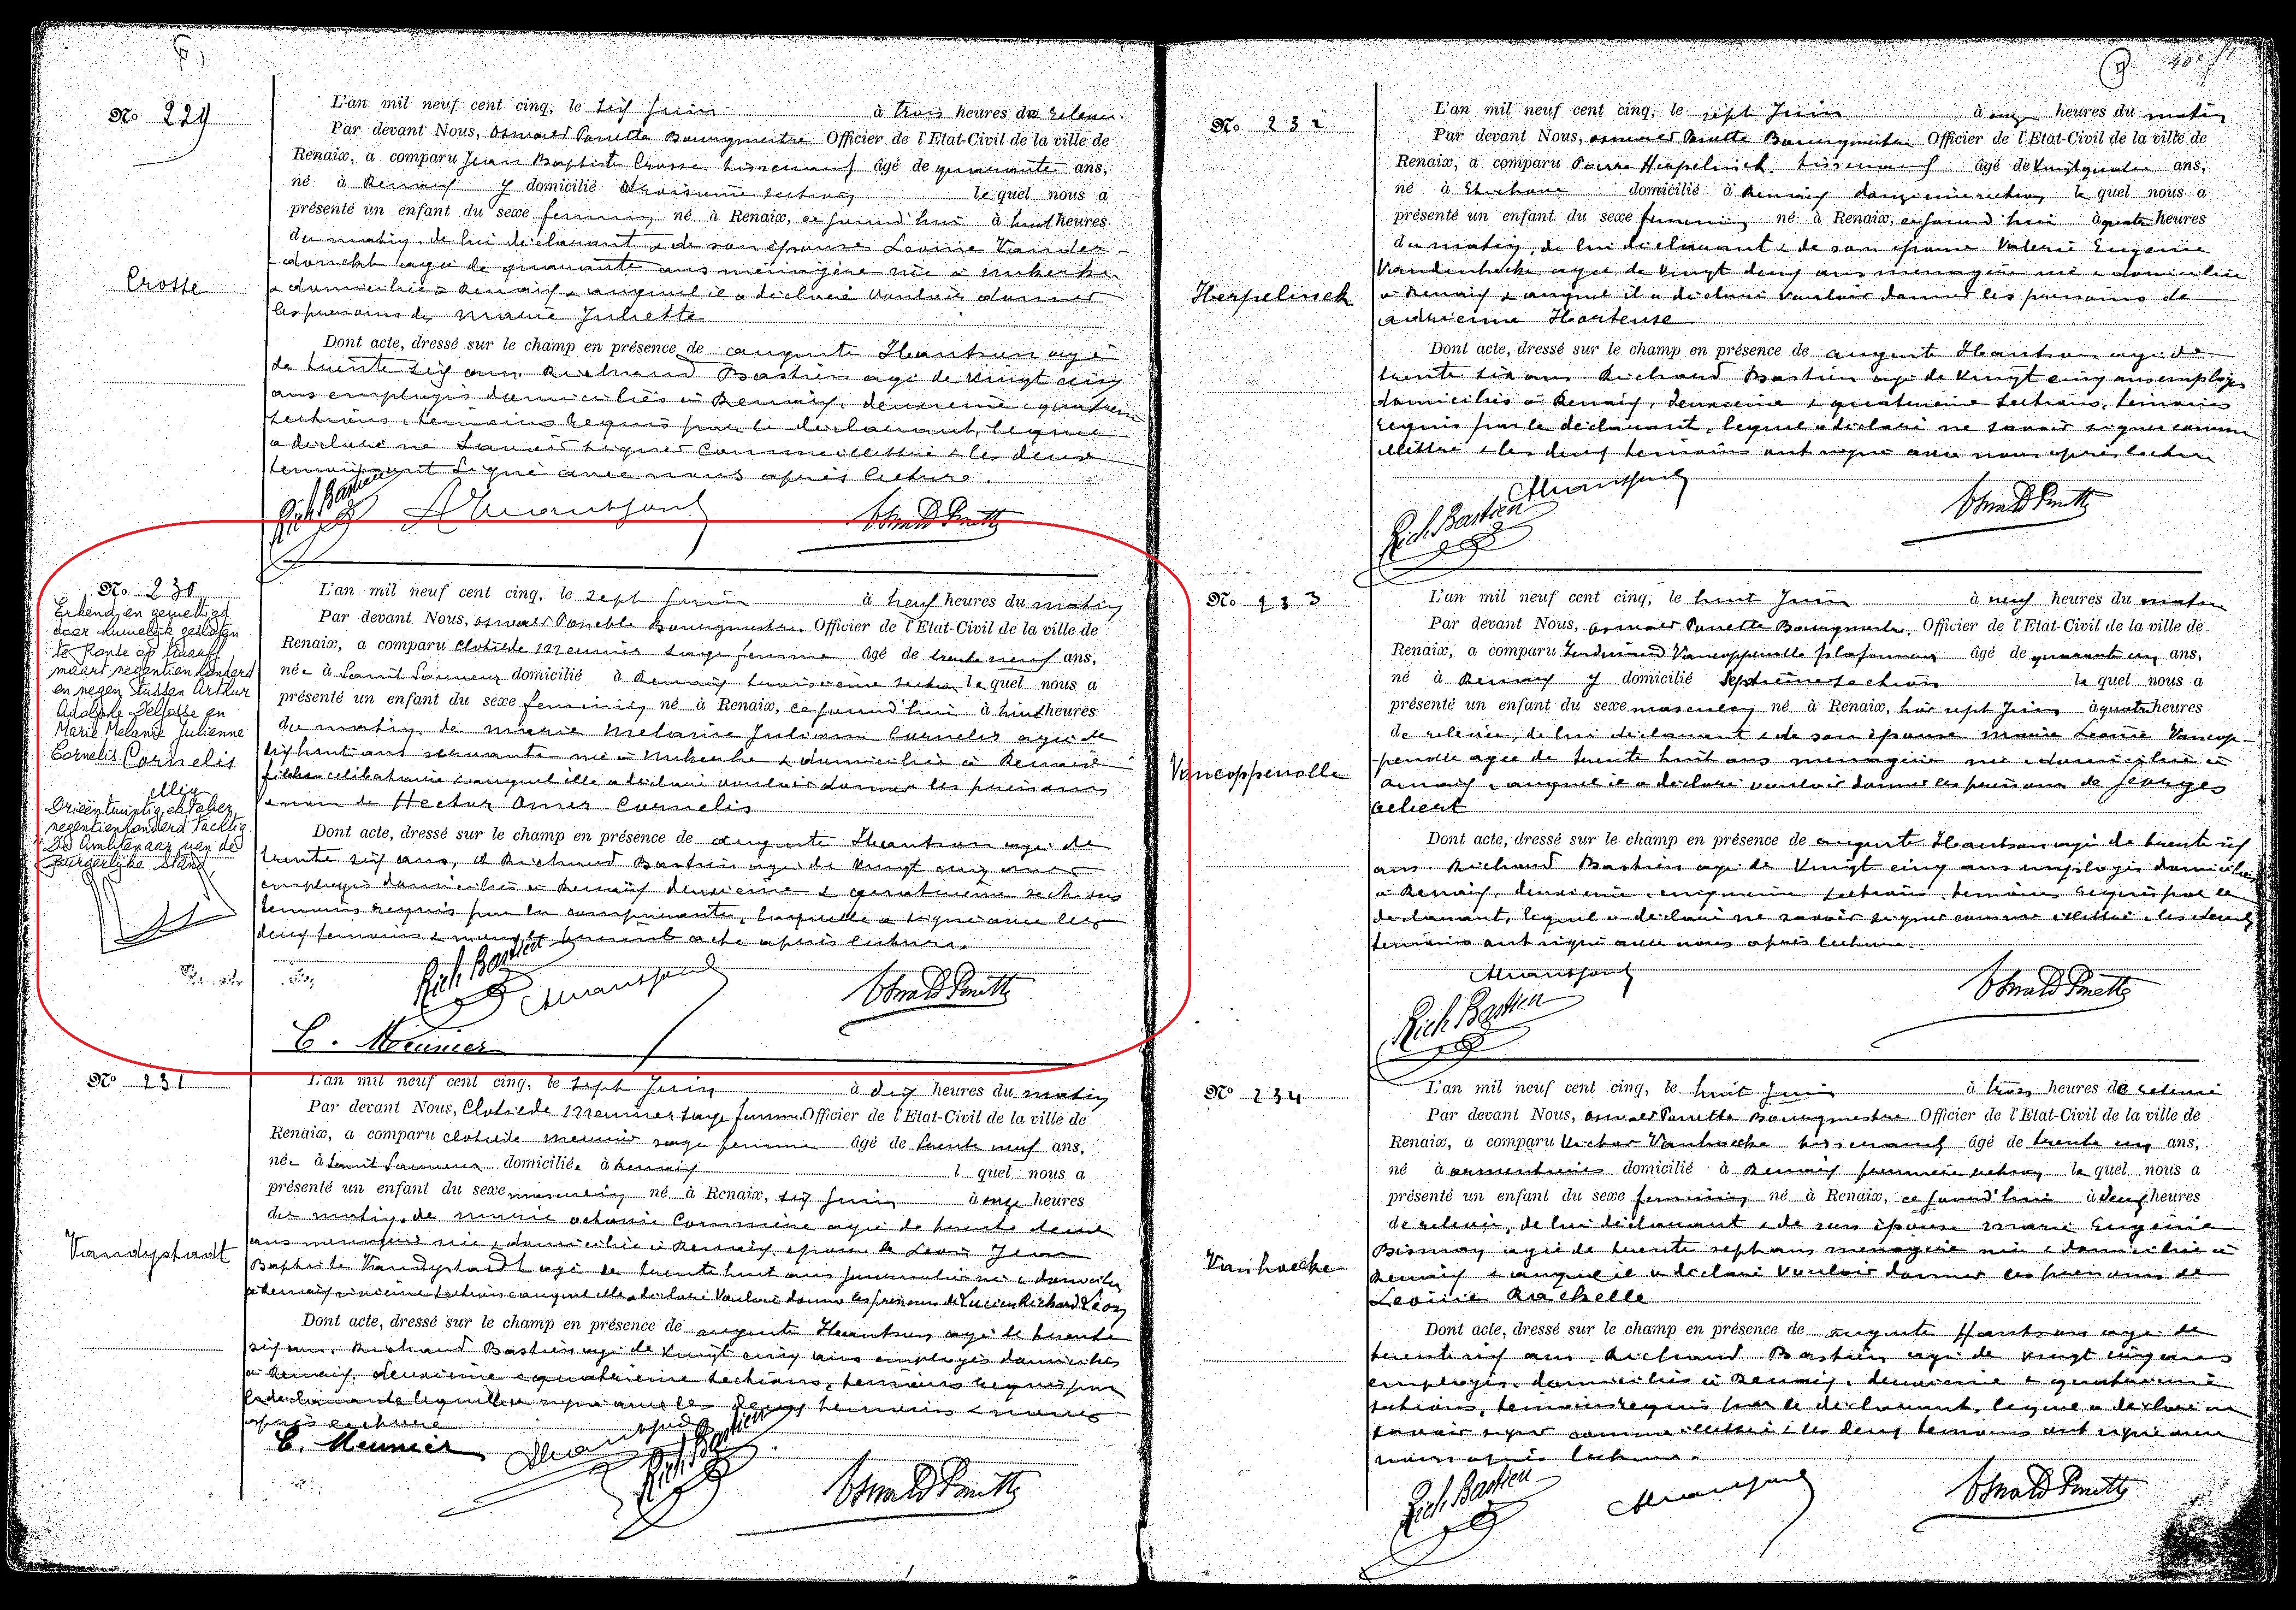 No 229
L'an mil neuf cent cinq, le six Juin à trois heures de relevée.
Par devant Nous, Oswald Ponette Bourgmestre Officier de l'Etat-Civil de la ville de
Renaix, a comparu Jean Baptiste Crosse tisserand âgé de quarante ans,
né à Renaix y domicilié troisième section lequel nous a
présenté un enfant du sexe feminin né à Renaix, ce jourd'hui à huit heures
du matin, de lui déclarant & de son épouse Léonie Vander-
donckt agée de quarante ans ménagère née à
& domiciliée à Renaix & auquel il a déclaré vouloir donner
les prénoms de Marie Juliette
Crosse
Dont acte, dressé sur le champ en présence de Auguste Hantson agé
de trente six ans Richard Bastien agé de vingt cinq
ans employés domiciliés à Renaix, deuxième & quatrième
sections, témoins requis par le déclarant, lequel
a déclaré ne savoir signer comme illettré & les deux
témoins ont signé avec nous après lecture.
Rich Bastien Oswald Ponette
No 230
Erkend en gewettigd
door huwelijk gesloten
te Ronse op twaalf
maart negentienhonderd
en negen tussen Arthur
Adolphe Delfosse en
Marie Melanie Julienne
Cornelis Cornelis
Drieëntwintig oktober
negentienhonderd tachtig
De Ambtenaar van de
Burgerlijke Stand
L'an mil neuf cent cinq, le sept Juin à neuf heures du matin
Par devant Nous, Oswald Ponette Bourgmestre Officier de l'Etat-Civil de la ville de
Renaix, a comparu Clotilde Meunier sage femme âgé de trente neuf ans,
née à Saint Sauveur domicilié à Renaix troisième section lequel nous a
présenté un enfant du sexe feminin né à Renaix, ce jourd'hui à huit heures
du matin, de Marie Melanie Julienne Cornelis agée de
dix huit ans servante née à Nukerke & domiciliée à Renaix
célibataire & auquel elle a déclaré vouloir donner les prénoms
de Hector Omer Cornelis
Dont acte, dressé sur le champ en présence de Auguste Hantson agé de
trente six ans, & Richard Bastien agé de vingt cinq ans
employés domiciliés à Renaix deuxième & quatrième sections
témoins requis par la comparante, laquelle a signé avec les
deux témoins & nous le présent acte après lecture.
Rich Bastien Oswald Ponette
C. Meunier
No 231
L'an mil neuf cent cinq, le sept Juin à dix heures du matin
Par devant Nous, Clotilde Meunier sage femme Officier de l'Etat-Civil de la ville de
Renaix, a comparu Clotilde Meunier sage femme âgé de trente neuf ans,
née à Saint Sauveur domiciliée à Renaix l quel nous a
présenté un enfant du sexe masculin né à Renaix, six Juin à onze heures
du matin, de Marie Octavie Commine agée de trente deux
ans née & domiciliée à Renaix, épouse de Léon Jean
Baptiste Vandystadt agé de trente huit ans journalier né & domicilié
à Renaix sixième section & auquel elle a déclaré vouloir donner les prénoms de Lucien Richard Léon
Vandystadt
Dont acte, dressé sur le champ en présence de Auguste Hantson agé de trente
six ans, Richard Bastien agé de vingt cinq ans employés domiciliés
à Renaix, deuxième & quatrième sections, témoins requis par
la déclarante laquelle a signé avec les deux témoins & nous
après lecture
C. Meunier Rich Bastien Oswald Ponette
No 232
L'an mil neuf cent cinq, le sept Juin à onze heures du matin
Par devant Nous, Oswald Ponette Bourgmestre Officier de l'Etat-Civil de la ville de
Renaix, a comparu Pierre Herpelinck tisserand âgé de vingt quatre ans,
né à Etichove domicilié à Renaix deuxième section lequel nous a
présenté un enfant du sexe feminin né à Renaix, ce jourd'hui à quatre heures
du matin, de lui déclarant & de son épouse Valérie Eugenie
Vandenhecke agée de vingt deux ans ménagère née & domiciliée
à Renaix & auquel il a déclaré vouloir donner les prénoms de
Adrienne Hortense
Herpelinck
Dont acte, dressé sur le champ en présence de Auguste Hantson agé de
trente six ans Richard Bastien agé de vingt cinq ans employés
domiciliés à Renaix, deuxième & quatrième sections, témoins
requis par le déclarant, lequel a déclaré ne savoir signer comme
illettré & les deux témoins ont signé avec nous après lecture
Rich Bastien Oswald Ponette
No 233
L'an mil neuf cent cinq, le huit Juin à neuf heures du matin
Par devant Nous, Oswald Ponette Bourgmestre, Officier de l'Etat-Civil de la ville de
Renaix, a comparu Ferdinand Vancoppenolle plafonneur âgé de quarante un ans,
né à Renaix y domicilié Septième section lequel nous a
présenté un enfant du sexe masculin né à Renaix, hier sept Juin à quatre heures
de relevée, de lui déclarant & de son épouse Marie Léonie Vancop-
penolle agée de trente huit ans ménagère née & domiciliée à
Renaix & auquel il a déclaré vouloir donner les prénoms de Georges
Albert
Vancoppenolle
Dont acte, dressé sur le champ en présence de Auguste Hantson agé de trente six
ans Richard Bastien agé de vingt cinq ans employés domiciliés
à Renaix, deuxième & quatrième sections, témoins requis par le
déclarant, lequel a déclaré ne savoir signer comme illettré & les deux
témoins ont signé avec nous après lecture.
Rich Bastien Oswald Ponette
No 234
L'an mil neuf cent cinq, le huit Juin à trois heures de relevée
Par devant Nous, Oswald Ponette Bourgmestre Officier de l'Etat-Civil de la ville de
Renaix, a comparu Victor Vanhoecke tisserand âgé de trente cinq ans,
né à Armentières domicilié à Renaix première section lequel nous a
présenté un enfant du sexe feminin né à Renaix, ce jourd'hui à deux heures
de relevée, de lui déclarant & de son épouse Marie Eugénie
Bismay agée de trente sept ans ménagère née & domiciliée à
Renaix & auquel il a déclaré vouloir donner les prénoms de
Léonie Rachelle
Vanhoecke
Dont acte, dressé sur le champ en présence de Auguste Hantson agé de
trente six ans Richard Bastien agé de vingt cinq ans
employés domiciliés à Renaix, deuxième & quatrième
sections, témoins requis par le déclarant, lequel a déclaré ne
savoir signer comme illettré & les deux témoins ont signé avec
nous après lecture.
Rich Bastien Oswald Ponette